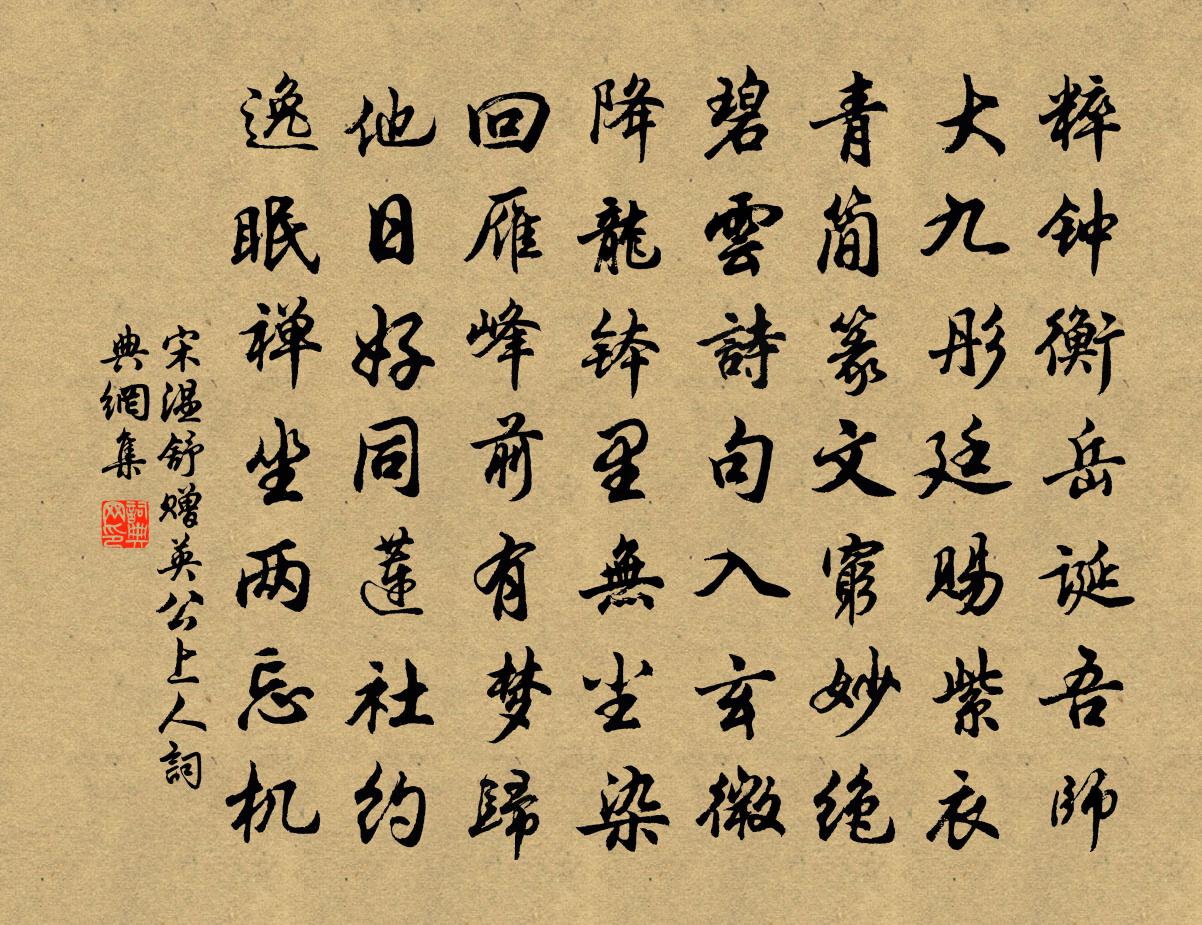 粹钟衡岳诞吾师
大九彤廷赐紫衣
青简篆文窮妙绝
碧雲詩句入玄微
降龍钵里無尘染
回雁峰前有梦歸
他日好同蓮社约
逸眠禅坐两忘机
宋温舒赠英公上人詞
典網集
詞典网印